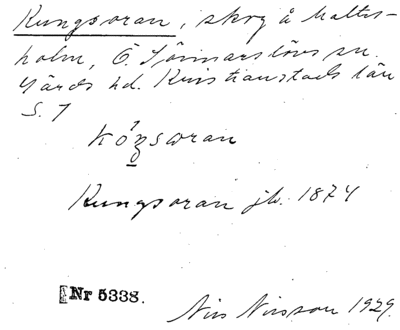 Kungsoran, skog å Maltes-
holm, Ö. Sönnarslövs sn.
Gärds hd. Kristianstads län
S. 7
Kungsoran jb. 1874
Nr 5338.
Nils Nilsson 1929.